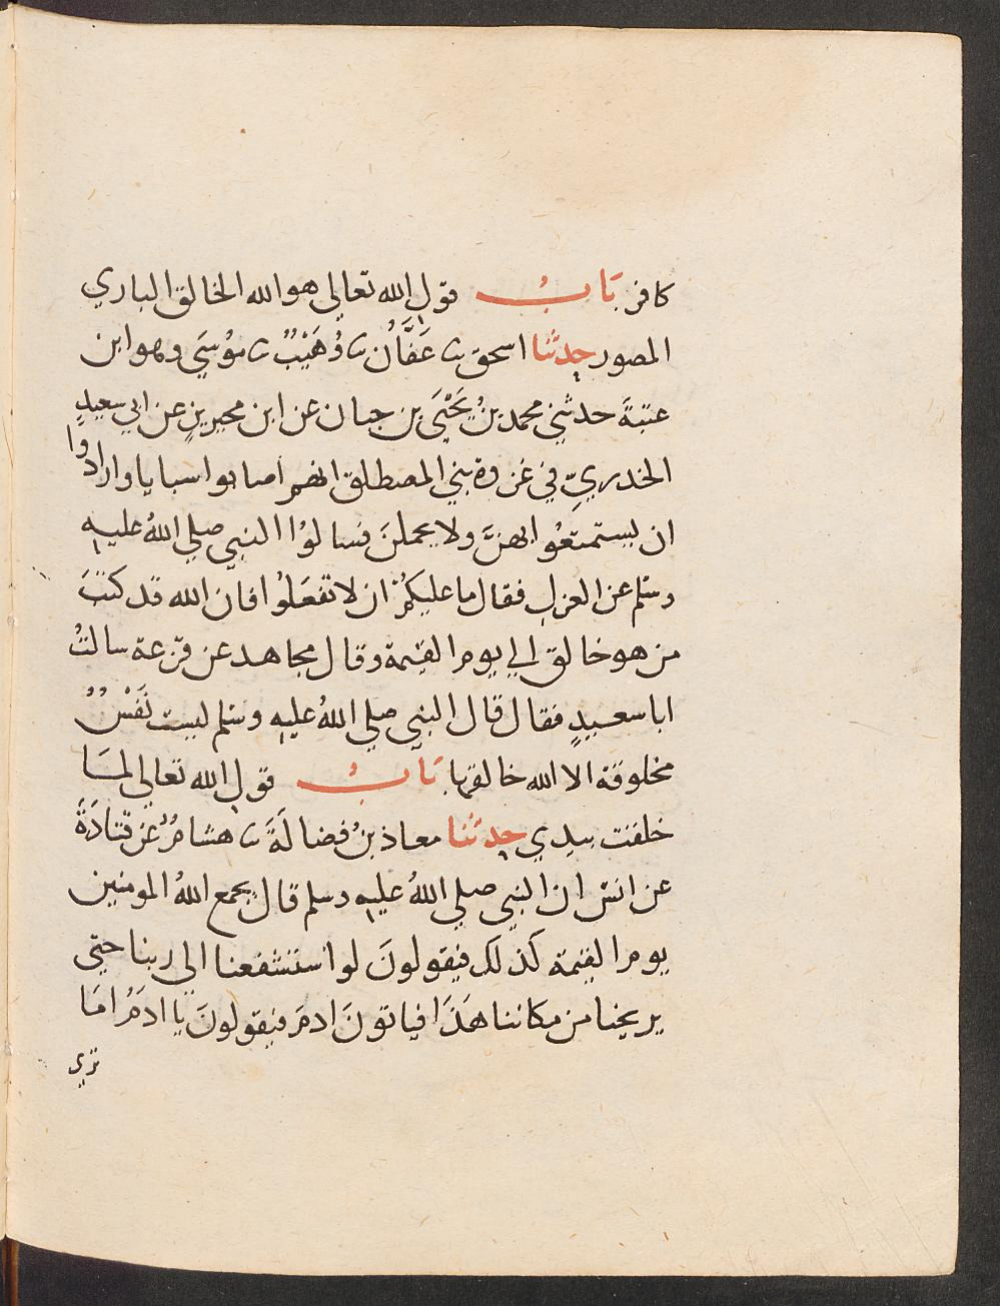 كافر بَابُ قوْل الله تعالي هو الله الخالق الباري
المصور حدثنا اسحق نا عَفَّانُ نا وُهَيْبٌ نا مُوْسَي وهو ابن
عتبةَ حدثني محمد بنُ يَحْيَى بن حبان عن ابن محيريزٍ عن ابي سعيدٍ
الخدريِّ في غزوة بني المصطلق انهم اصابوا سبايا وارادوا
ان يستمتعُوا بهنَّ ولا يحملنَ فسالوُا النبي صلي اللهُ عليه
وسَلم عن العزل فقال ما عليكمُ ان لا تفعَلوُا فان الله قد كتبَ
من هو خالق الي يوم القيمة وقال مجاهد عن قزعة سالتُ
ابا سعيدٍ فقال قال النبي صلي اللهُ عليه وسلم ليست نَفْسٌ
مخلوقة الا الله خالقها بَابُ قول الله تعالي لمَا
خلقت بيدي حدثنا معاذ بنُ فضالَةَ نا هشامٌ عن قتادَةَ
عن انسٍ ان النبي صلي اللهُ عليه وسلم قال يجمع اللهُ المومنين
يوم القيمة كذلك فيقولونَ لو استشفعنا الي ربنا حتي
يريحنا من مكاننا هَذَا فياتونَ ادمَ فيقولونَ يا ادمُ امَا
تري